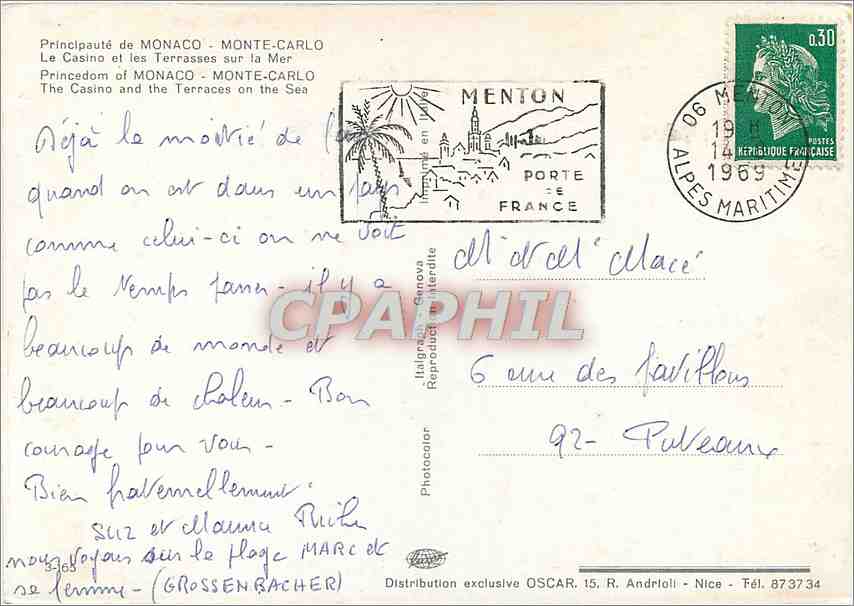 Principauté de MONACO - MONTE-CARLO
Le Casino et les Terrasses sur la Mer
Princedom of MONACO - MONTE-CARLO
The Casino and the Terraces on the Sea
Déjà la moitié de
quand on est dans un pays
comme celui-ci on ne voit
pas le temps passer - il y a
beaucoup de monde et
beaucoup de chaleur - Bon
courage pour vous -
Bien fraternellement.
Suz et Maurice
nous voyons sur la plage MARC et
sa femme - (GROSSENBACHER)
3-165
MENTON
PORTE
DE
FRANCE
Imprimé en Italie
0,30
POSTES
REPUBLIQUE FRANÇAISE
06 MENTON
19 H
14
1969
ALPES MARITIMES
Mr et Me Macé
6 rue des Pavillons
92 - Puteaux
Italgraph - Genova
Reproduction interdite
Photocolor
CPAPHIL
Distribution exclusive OSCAR. 15, R. Andrioli - Nice - Tél. 87 37 34